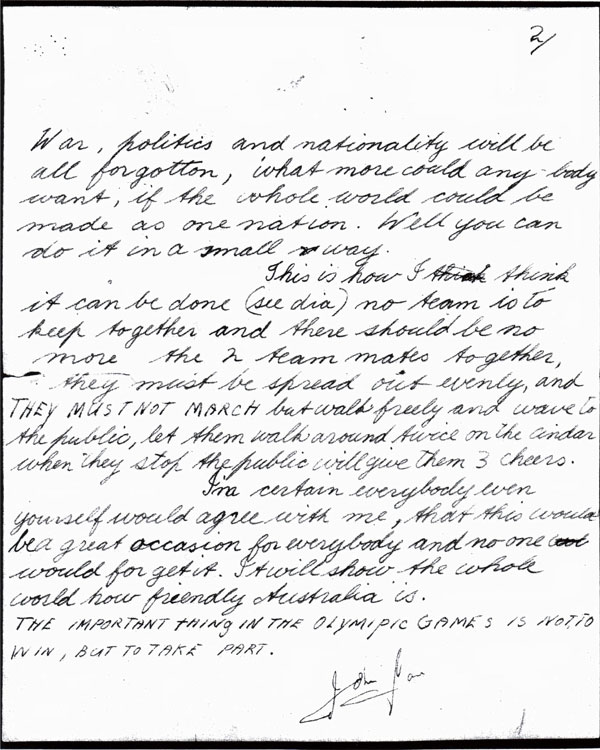 2/
War, politics and nationality will be
all forgotton, what more could any-body
want, if the whole world could be
made as one nation. Well you can
do it in a small way.
This is how I think think
it can be done (see dia) no team is to
keep together and there should be no
more the 2 team mates together,
they must be spread out evenly, and
THEY MUST NOT MARCH but walk freely and wave to
the public, let them walk around twice on the cindar
when they stop the public will give them 3 cheers.
I'm certain everybody even
yourself would agree with me, that this would
be a great occasion for everybody and no one
would forget it. It will show the whole
world how friendly Australia is.
THE IMPORTANT THING IN THE OLYMIPIC GAMES IS NOT TO
WIN, BUT TO TAKE PART.
John